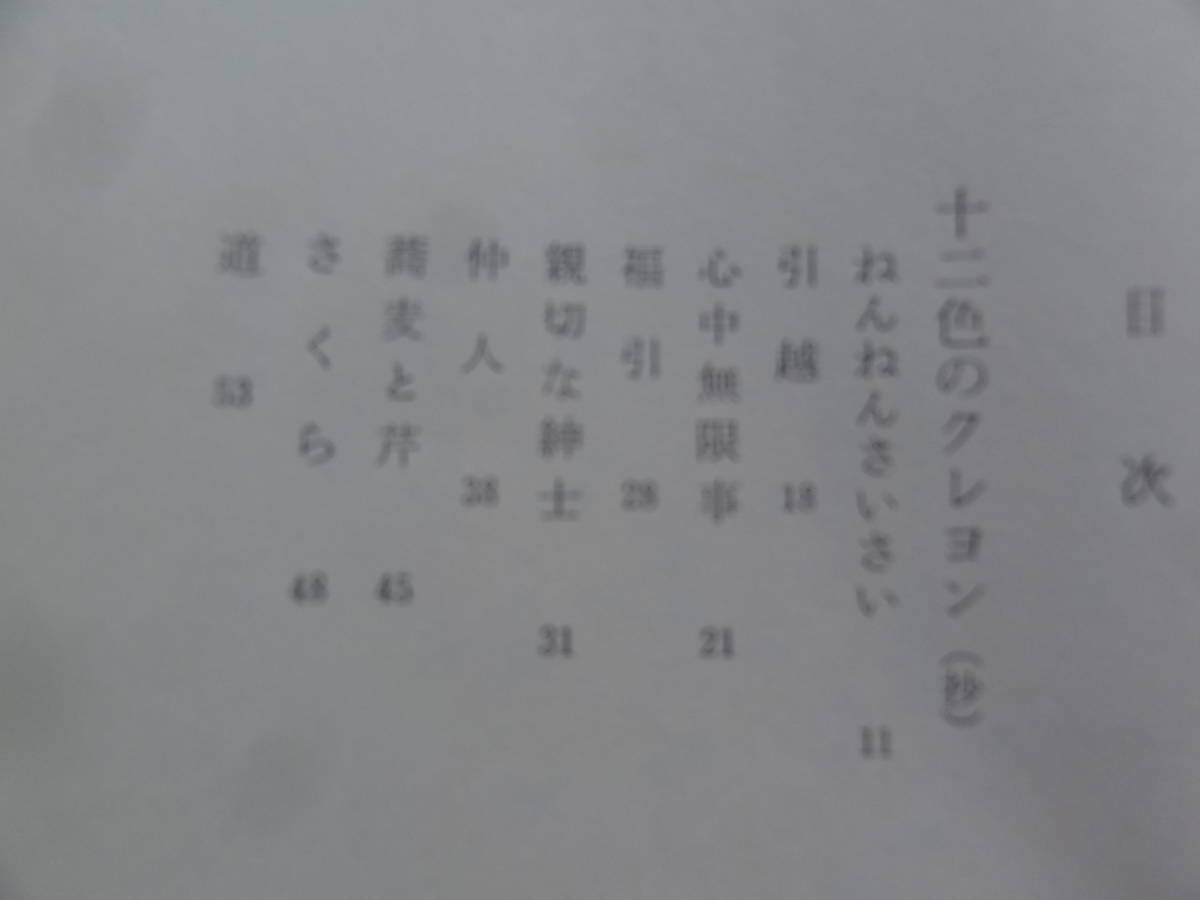 目次
十二色のクレヨン（抄）
ねんねんさいさい 11
引越 18
心中無限事 21
福引 28
親切な紳士 31
仲人 38
蕎麦と芹 45
さくら 48
道 53